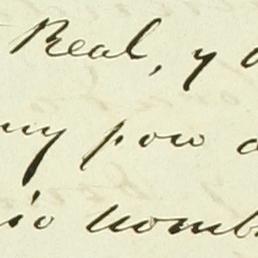 Real, y
my poco
io nomb